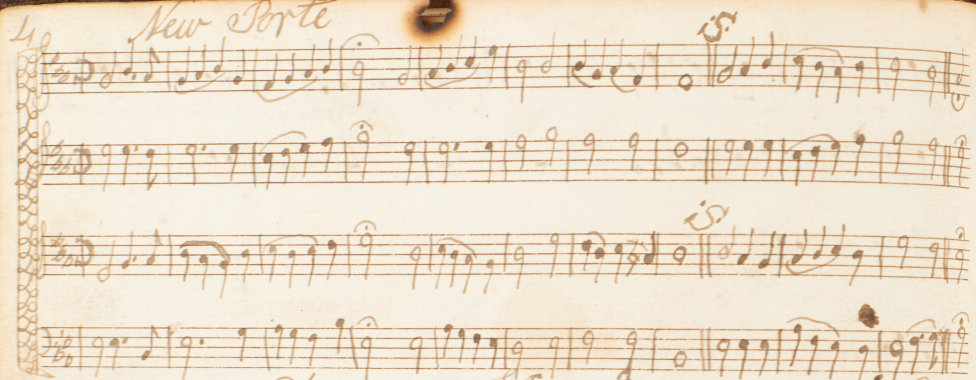 4 New Porte
:S:
:S: